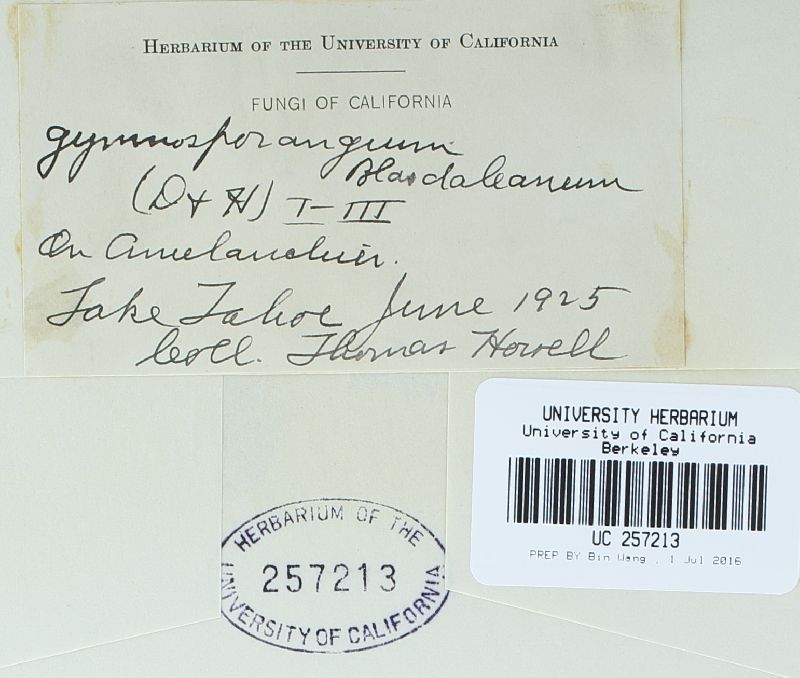 HERBARIUM OF THE UNIVERSITY OF CALIFORNIA
FUNGI OF CALIFORNIA
Gymnosporangium
Blasdaleanum
(D + H) I-III
On Amelanchier.
Lake Tahoe June 1925
Coll. Thomas Howell
UNIVERSITY HERBARIUM
University of California
Berkeley
UC 257213
PREP BY Bin Wang , 1 Jul 2016
HERBARIUM OF THE
257213
UNIVERSITY OF CALIFORNIA